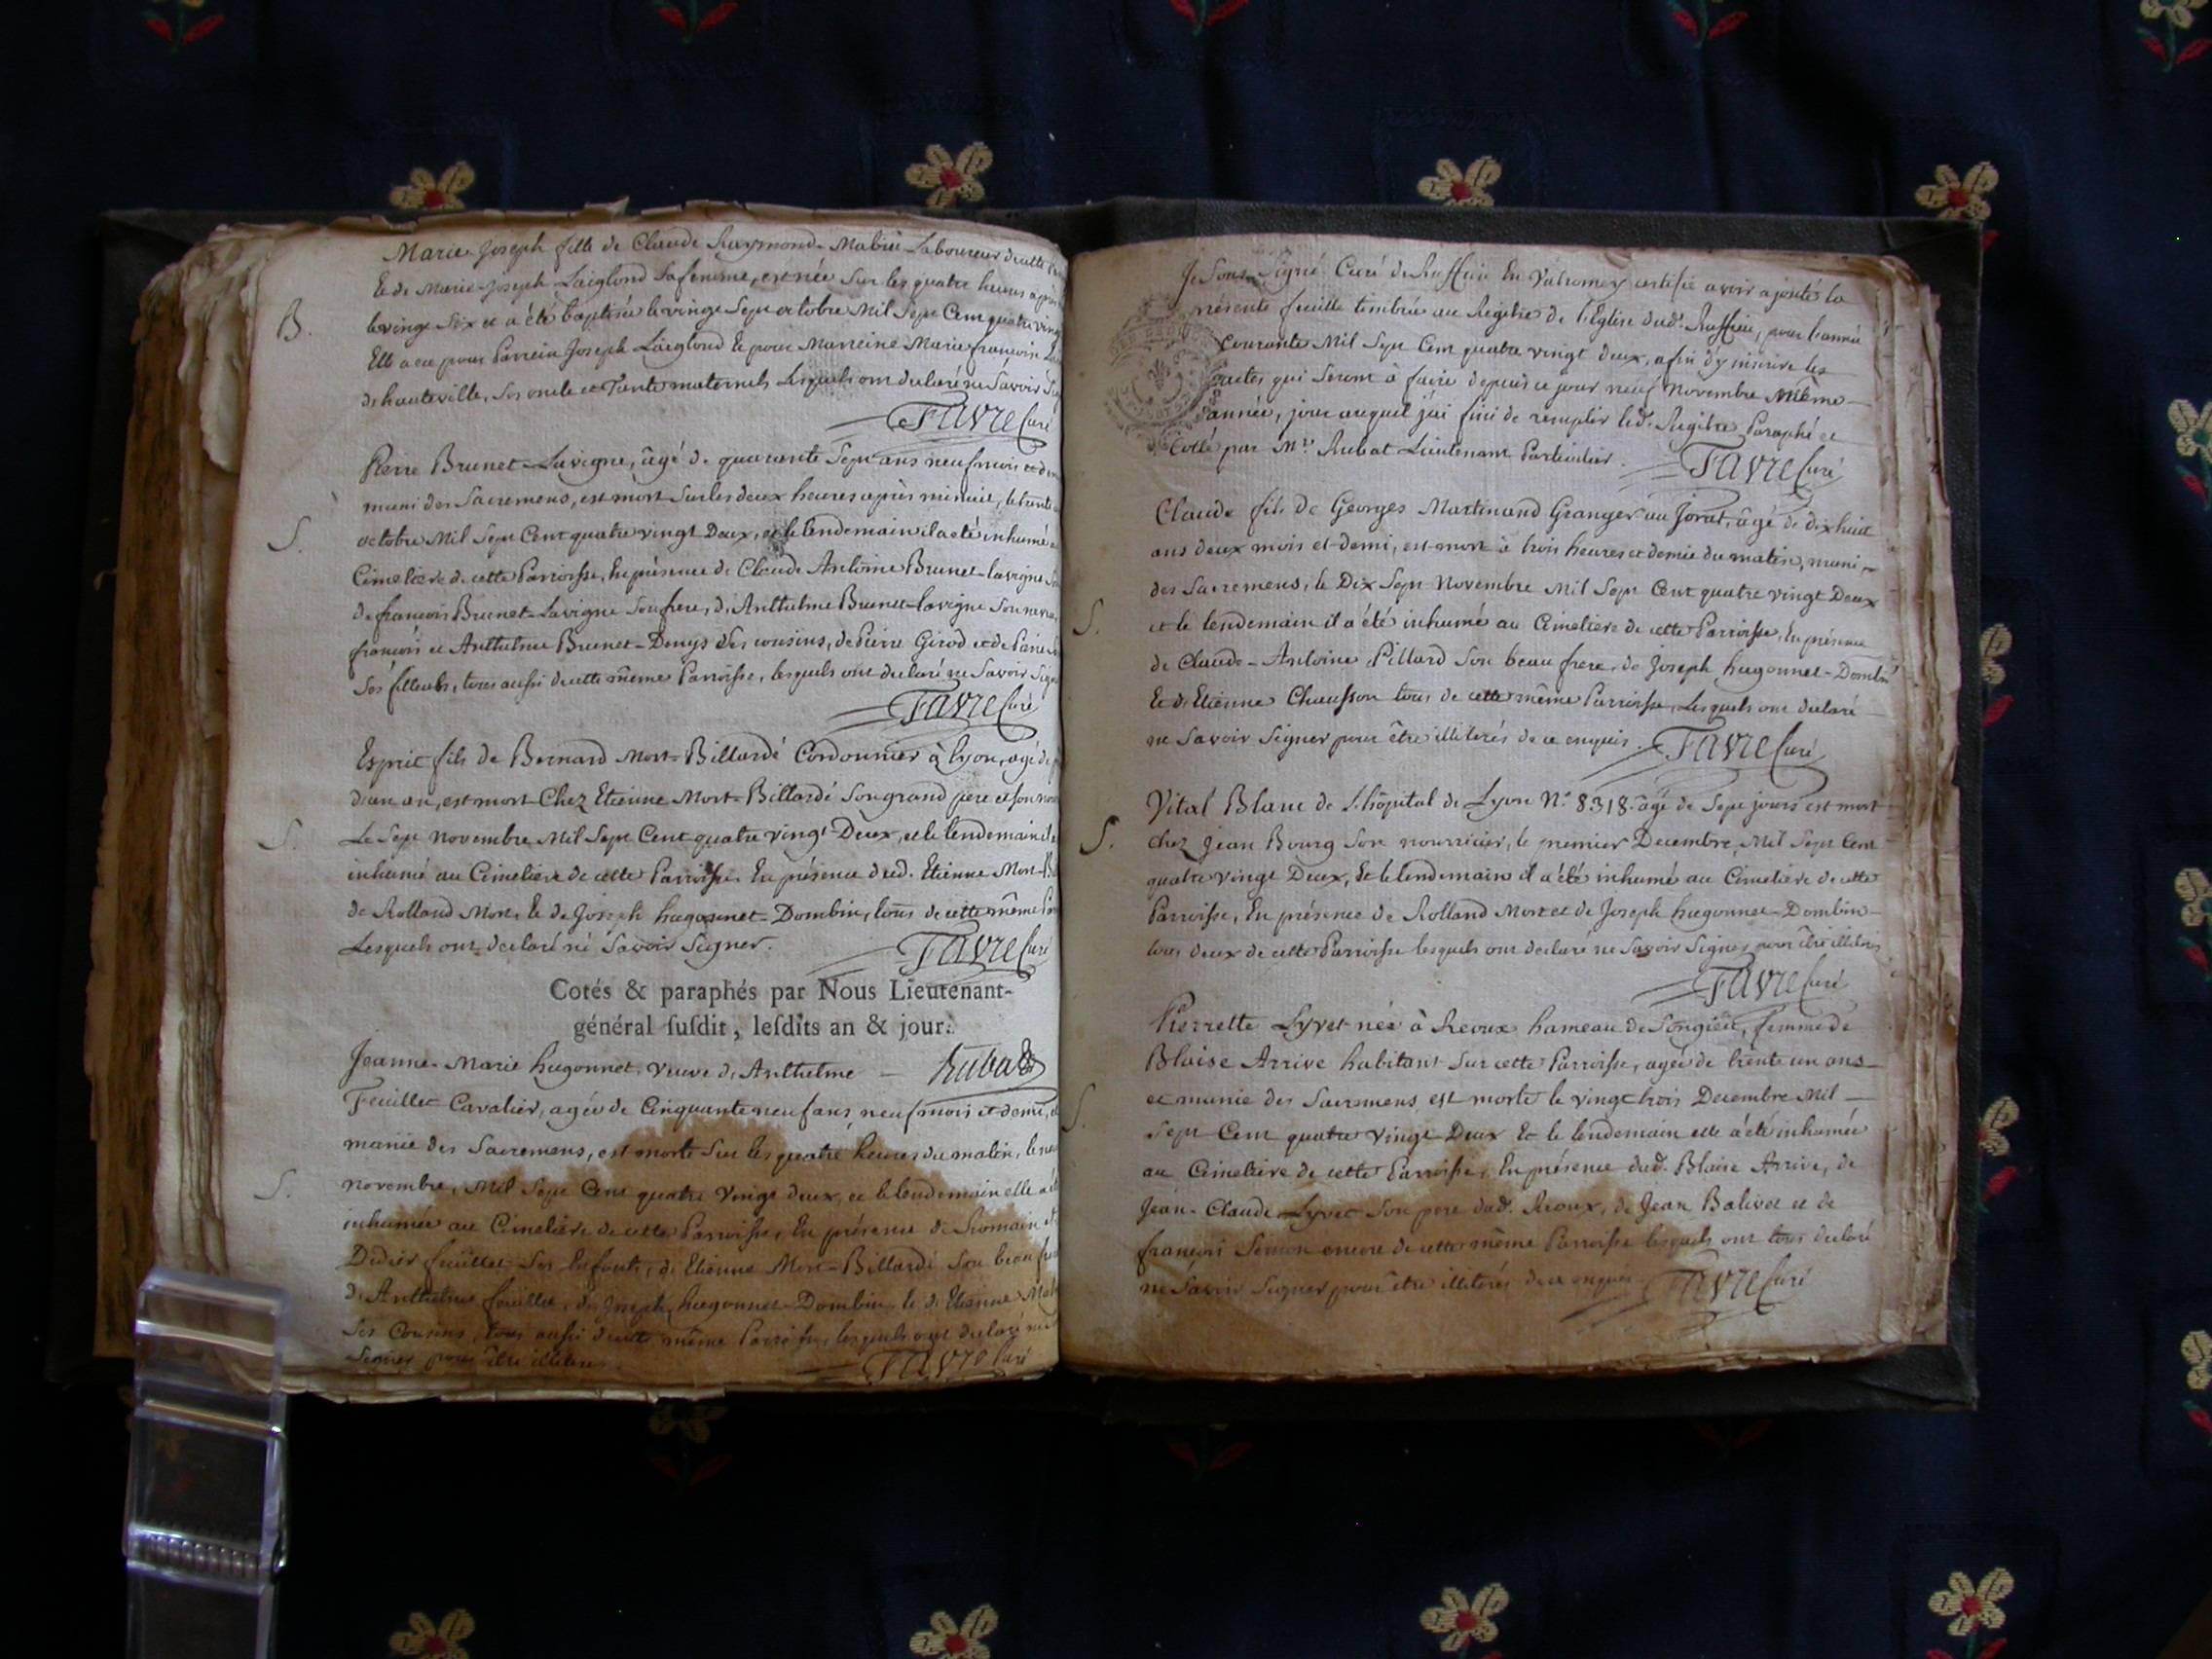 Marie-Joseph fille de Claude Raymond-Mabin Laboureur de cette
Et de Marie-Joseph Laiglond sa femme, est née sur les quatre heures après
B.
le vingt Six et a été baptisée le vingt Sept octobre Mil Sept Cent quatre vingt
Elle a eu pour Parrein Joseph Laiglond Et pour Marreine Marie françoise
de hauteville, Ses oncle et Tante maternels Lesquels ont declaré ne Savoir
FAVRE Curé
Pierre Brunet-Lavigne, âgé de quarante Sept ans neuf mois et demi
muni des Sacremens, est mort sur les deux heures après minuit, le trente
S.
octobre Mil Sept Cent quatre vingt Deux, et le lendemain il a été inhumé
Cimetiere de cette Parroisse, En présence de Claude Antoine Brunet-lavigne
de françois Brunet-Lavigne Son frere, d'Anthelme Brunet-lavigne Son neveu,
françois et Anthelme Brunet-Denys Ses cousins, de Pierre Girod et de Pierre
Ses filleuls, tous aussi de cette même Parroisse, lesquels ont declaré ne Savoir
FAVRE Curé
Esprit fils de Bernard Mort-Billardé Cordonnier à Lyon, agé de
d'un an, est mort Chez Etienne Mort-Billardé Son grand pere et son
S.
Le Sept novembre Mil Sept Cent quatre vingt-Deux, et le lendemain il
inhumé au Cimetiere de cette Parroisse. En présence dud. Etienne Mort-
de Rolland Mort, Et de Joseph hugonnet-Dombin, tous de cette même
Lesquels ont declaré ne Savoir Signer.
FAVRE Curé
Cotés & paraphés par Nous Lieutenant-
général ſuſdit, leſdits an & jour.
Jeanne-Marie hugonnet, Veuve d'Anthelme
Rubat
Feuillet Cavalier, agée de Cinquante neuf ans, neuf mois et demi,
munie des Sacremens, est morte sur les quatre heures du matin, le
S.
novembre, Mil Sept Cent quatre Vingt deux, et le lendemain elle a
inhumée au Cimetiere de cette Parroisse, En présence de Romain et
Didier feuillet Ses Enfants, d'Etienne Mort-Billardé Son beau
d'Anthelme feuillet, de Joseph hugonnet-Dombin, Et de Etienne
Ses Cousins, tous aussi de cette même Parroisse, lesquels ont declaré ne
Signer pour être illiterés.
FAVRE Curé
Je Sous Signé Curé de Ruffieu En Valromey certifie avoir ajouté la
présente feuille timbrée au Registre de l'Eglise dud. Ruffieu, pour l'année
Courante Mil Sept Cent quatre vingt deux, afin d'y inscrire les
actes qui Seront à faire depuis ce jour neuf Novembre même
année, jour auquel j'ai fini de remplir led. Registre Paraphé et
Cotté par Mr. Rubat Lieutenant Particulier.
FAVRE Curé
Claude fils de Georges Martinand Granger au Jorat, âgé de dix huit
ans deux mois et demi, est mort à trois heures et demie du matin, muni
des Sacremens, le Dix Sept Novembre Mil Sept Cent quatre vingt Deux
S.
et le lendemain il a été inhumé au Cimetiere de cette Parroisse, En présence
de Claude-Antoine Pillard Son beau frere, de Joseph hugonnet-Dombin
Et d'Etienne Chausson tous de cette même Parroisse, Lesquels ont declaré
ne Savoir Signer pour être illiterés de ce enquis.
FAVRE Curé
Vital Blanc de L'hôpital de Lyon No. 8318. âgé de Sept jours est mort
S.
chez Jean Bourg Son nourricier, le premier Decembre, Mil Sept Cent
quatre vingt Deux, Et le lendemain il a été inhumé au Cimetiere de cette
Parroisse, En présence de Rolland Mort et de Joseph hugonnet-Dombin
tous deux de cette Parroisse lesquels ont declaré ne Savoir Signer pour être illiterés
FAVRE Curé
Pierrette Lyvet née à Reoux hameau de Songieu, femme de
Blaise Arrive habitant sur cette Parroisse, agée de trente un ans
S.
et munie des Sacremens est morte le vingt trois Decembre Mil
Sept Cent quatre Vingt Deux Et le lendemain elle a été inhumée
au Cimetiere de cette Parroisse, En présence dud. Blaise Arrive, de
Jean-Claude Lyvet Son pere dud. Reoux, de Jean Balivet et de
françois encore de cette même Parroisse lesquels ont tous declaré
ne Savoir Signer pour être illiterés de ce enquis
FAVRE Curé